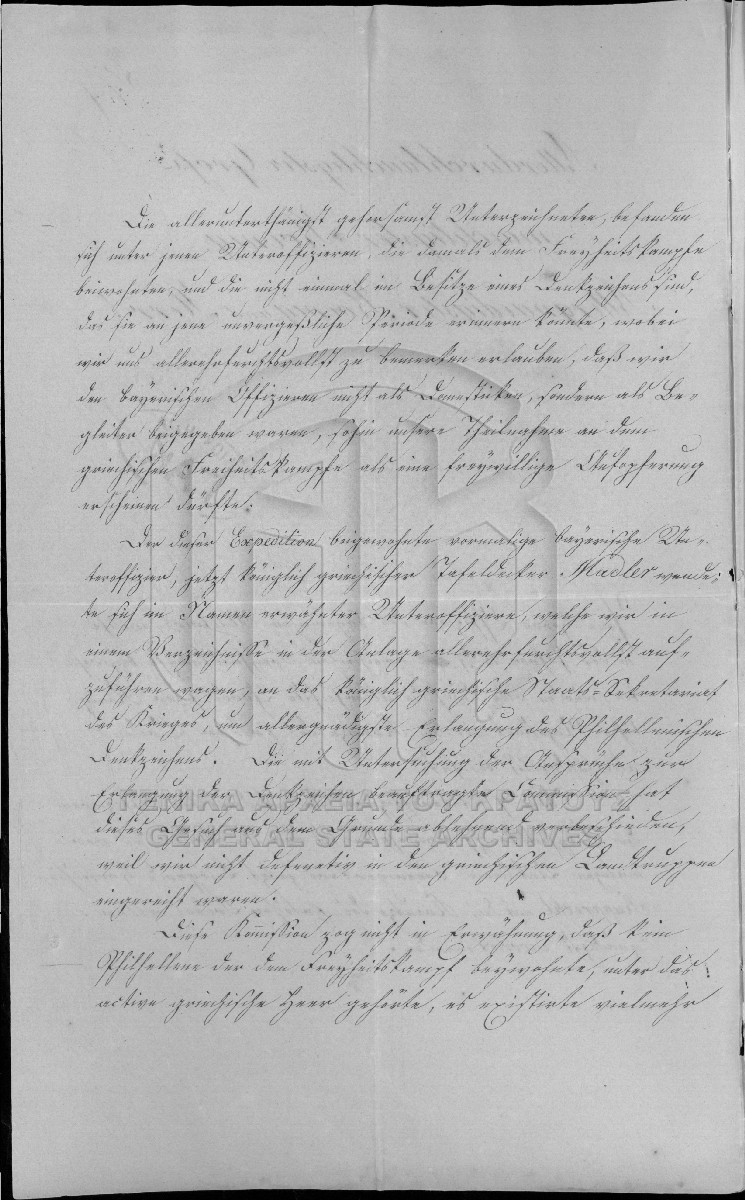 Die allerunterthänigst gehorsamst Unterzeichneten, befanden
sich unter jenen Unteroffizieren, die damals dem Freyheitskampfe
beiwohnten, und die nicht einmal im Besitze eines Denkzeichens sind,
das sie an jene unvergeßliche Periode erinnern könnte, wobei
wir uns allerehrfurchtsvollst zu bemerken erlauben, daß wir
den bayerischen Offizieren nicht als Domestiken, sondern als Be-
gleiter beigegeben waren, sohin unsere Theilnahme an dem
griechischen Freiheitskampfe als eine freywillige Aufopferung
erscheinen dürfte.
Der dieser Expedition beigewohnte vormalige bayerische Un-
teroffizier, jetzt königlich griechischer Tafeldecker Madler wende-
te sich im Namen erwähnter Unteroffiziere, welche wir in
einem Verzeichnisse in der Anlage allerehrfurchtsvollst auf-
zuführen wagen, an das königlich griechische Staats-Sekretariat
des Krieges, um allergnädigste Erlangung des Philhellenischen
Denkzeichens. Die mit Untersuchung der Ansprüche zur
Erlangung der Denkzeichen beauftragte Commission, hat
dieses Gesuch aus dem Grunde ablehnend verbeschieden,
weil wir nicht defenetiv in den griechischen Landtruppen
eingereiht waren.
Diese Kommission zog nicht in Erwähnung, daß kein
Philhellene der dem Freyheitskampf beywohnte, unter das
active griechische Heer gehörte, es existirte vielmehr
ΓΕΝΙΚΑ ΑΡΧΕΙΑ ΤΟΥ ΚΡΑΤΟΥΣ
GENERAL STATE ARCHIVES